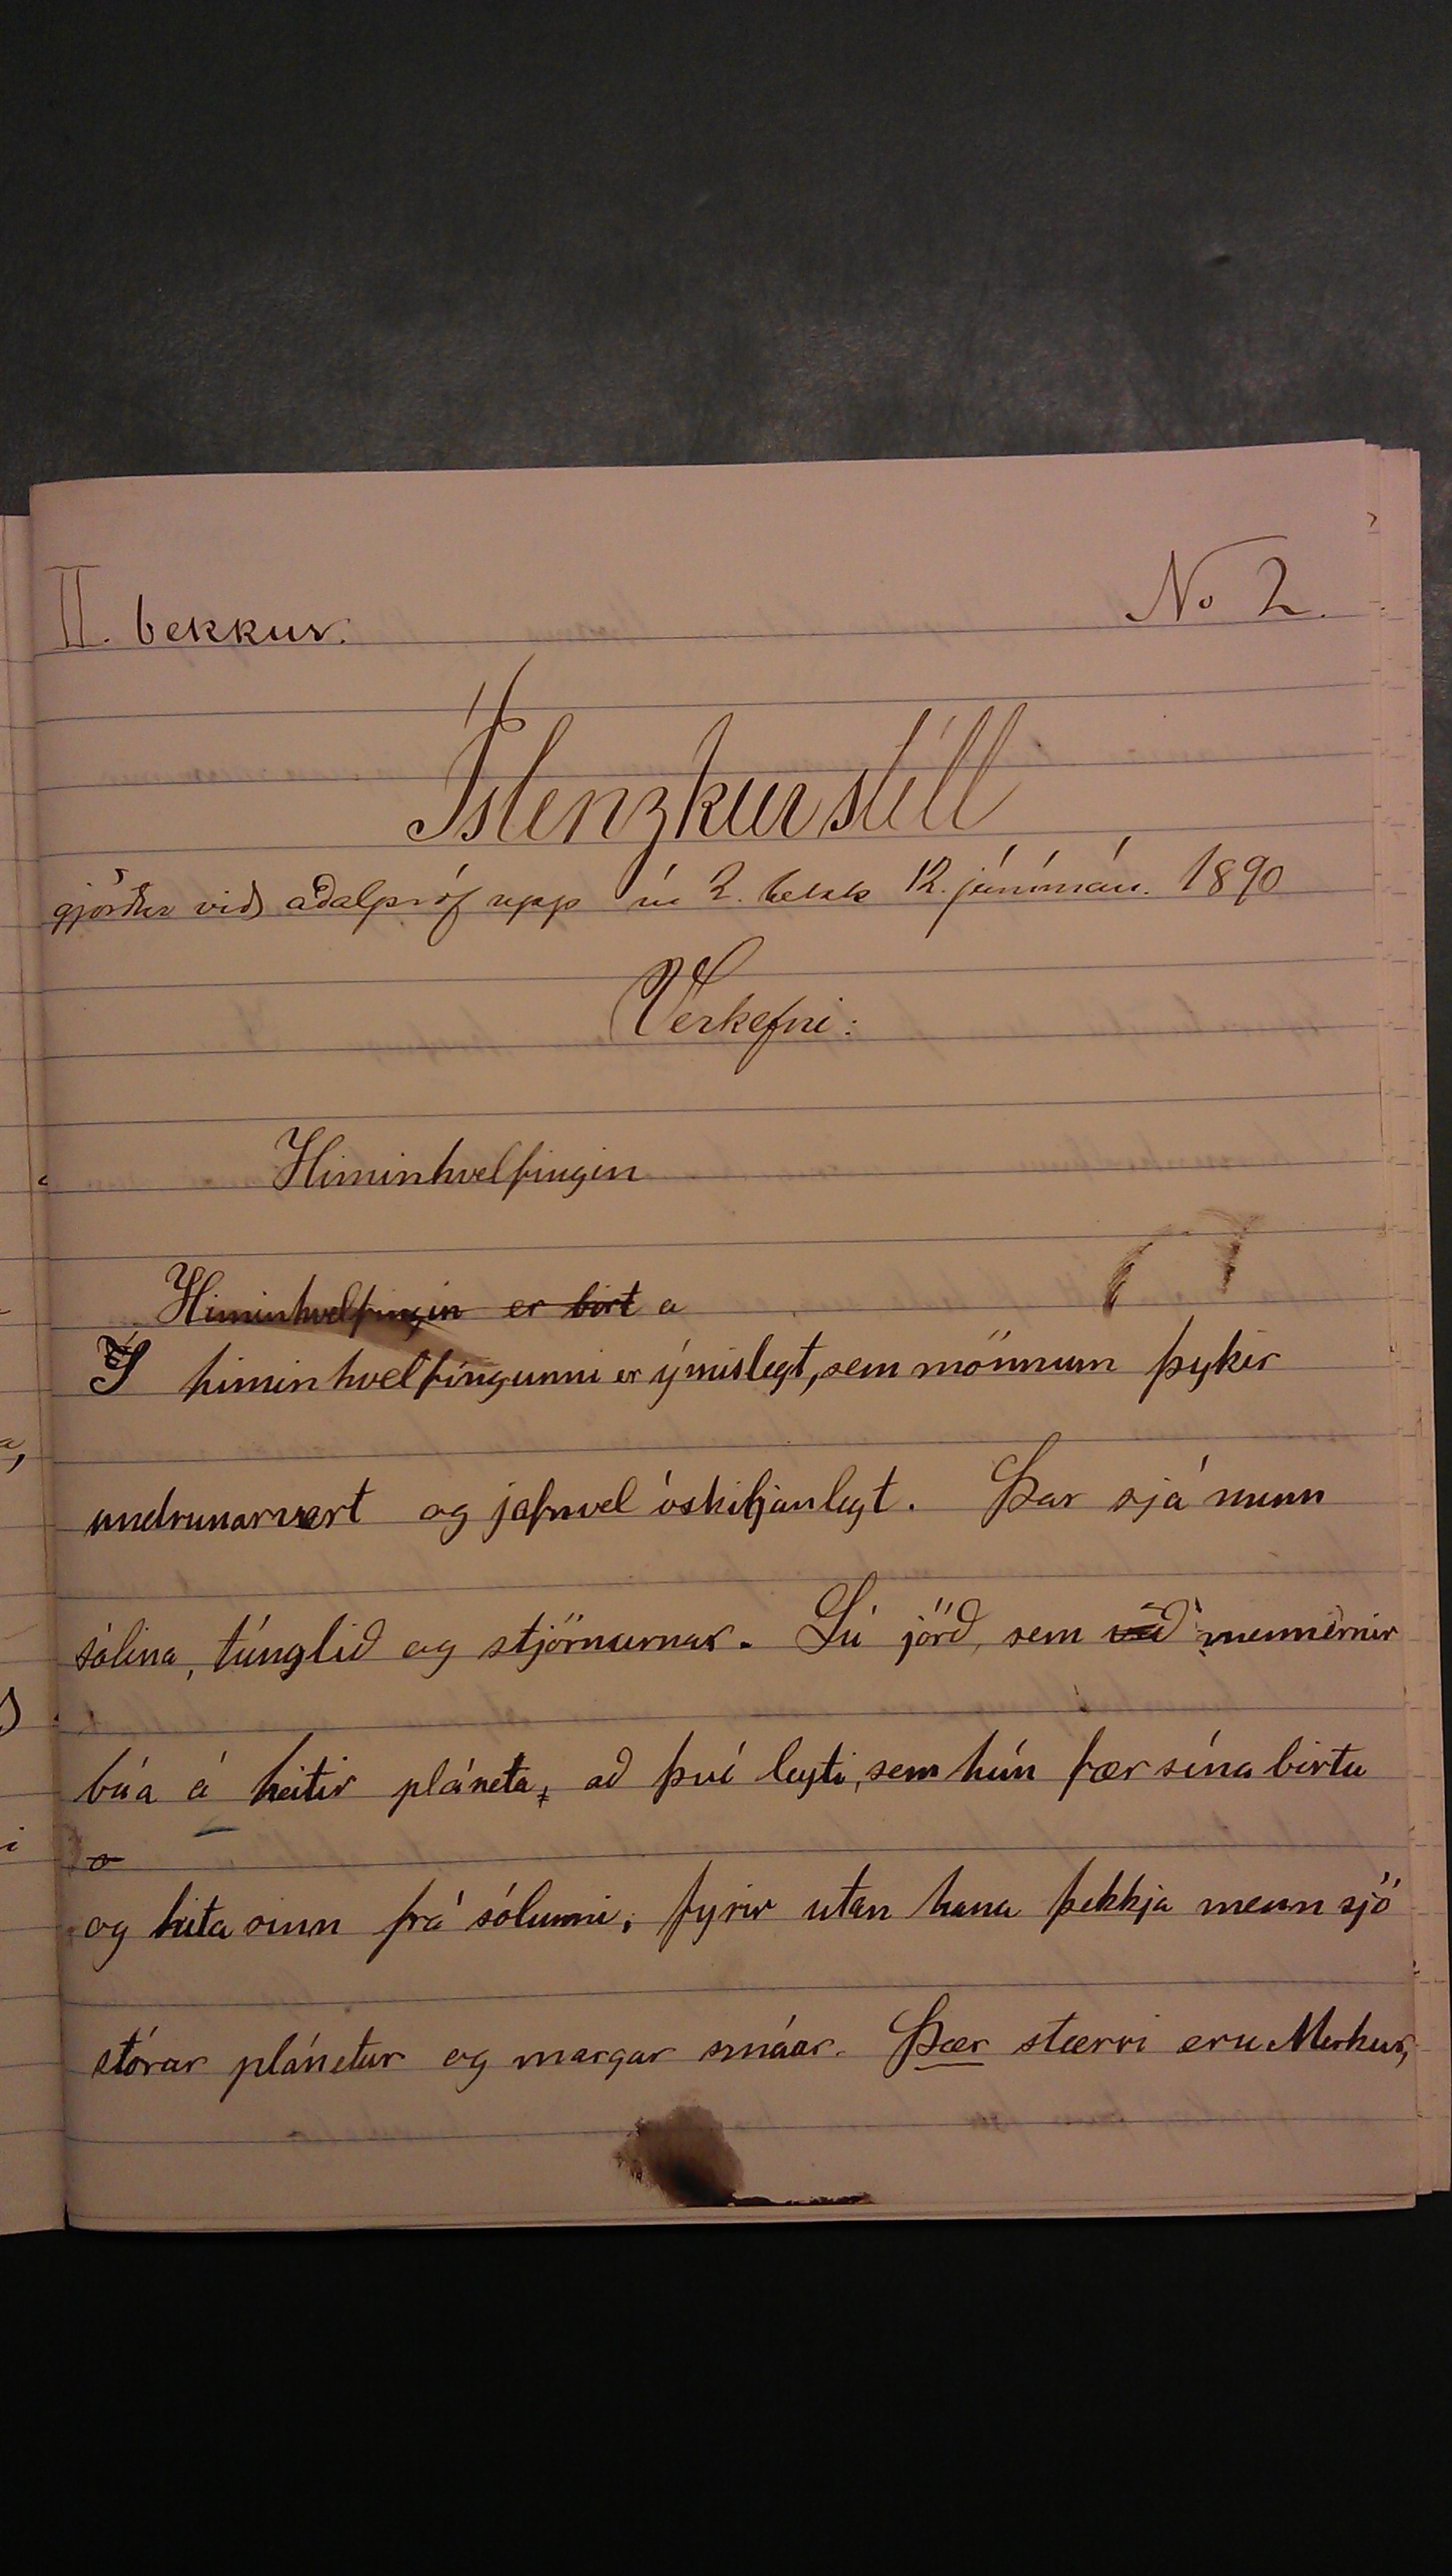 II. bekkur.
No 2.
Íslenzkur stíll
gjörður við aðalpróf upp úr 2. bekk 12. júnímán. 1890
Verkefni:
Himinhvelfingin
Himinhvelfingin er birt a
Í himinhvelfingunni er ýmislegt, sem mönnum þykir
undrunarvert og jafnvel óskiljanlegt. Þar sjá menn
sólina, túnglið og stjörnurnar. Sú jörð, sem við mennirnir
búa á heitir pláneta, að því leyti, sem hún fær sína birtu
og hita sinn frá sólunni; fyrir utan hana þekkja menn sjö
stórar plánetur og margar smáar. Þær stærri eru Merkur,